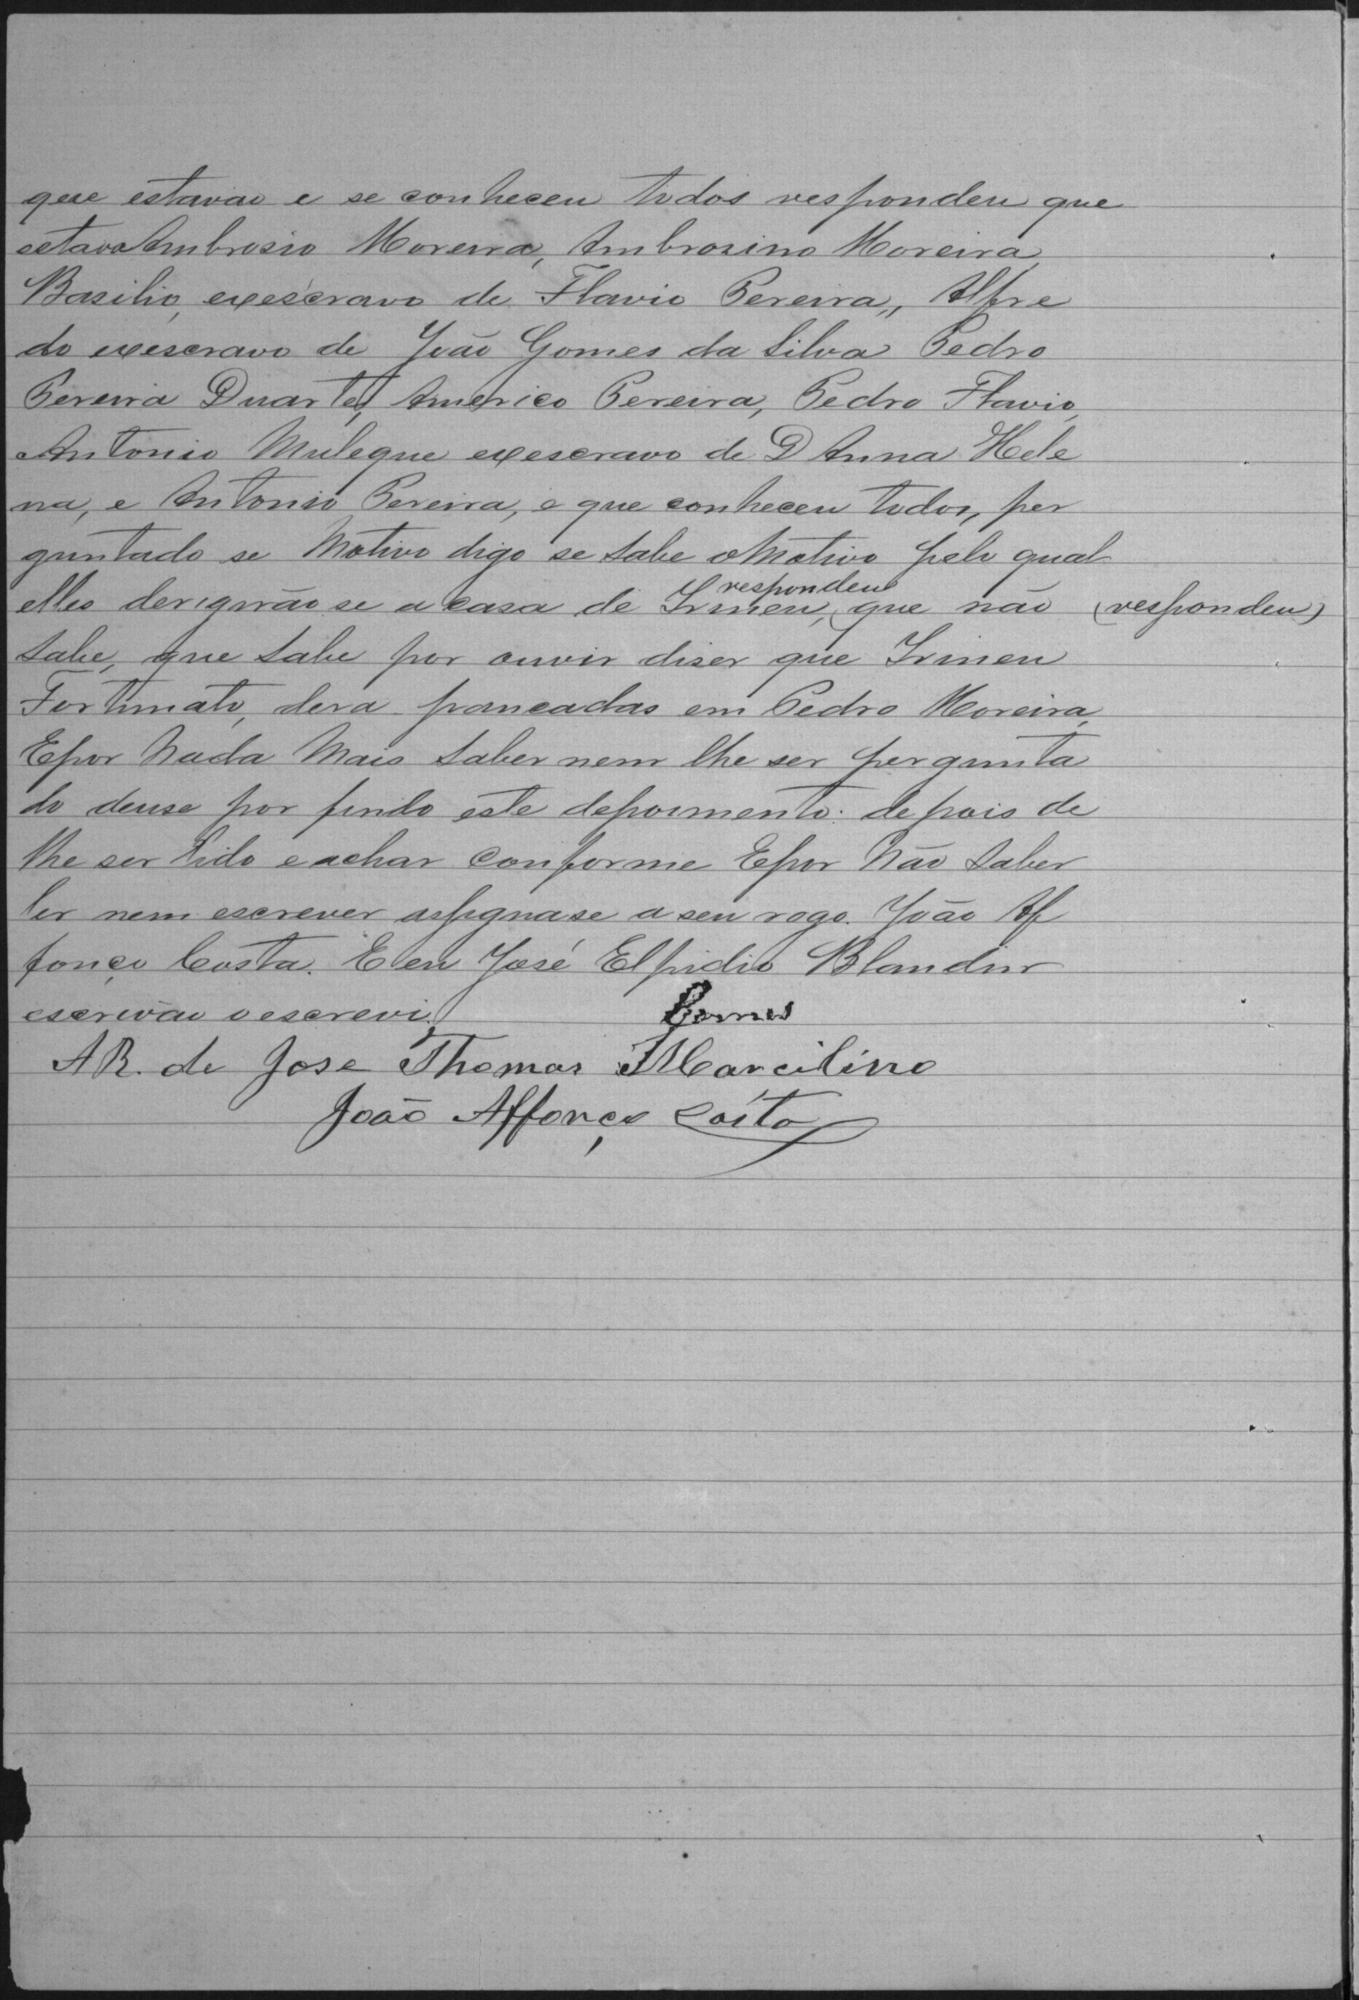 que estavão e se conheceu todos respondeu que
estava Ambrosio Moreira, Ambrosino Moreira,
Basilio, exescravo de Flavio Pereira,, Alfre
do exescravo de João Gomes da Silva Pedro
Pereira Duarte, Americo Pereira, Pedro Flavio,
Antonio Muleque exescravo de D Anna Hele
na, e Antonio Pereira, e que conheceu todos, per
guntado se Motivo digo se sabe o Motivo pelo qual
elles derigirão se a casa de Irineu, (respondeu que não (respondeu)
sabe, que sabe por ouvir diser que Irineu
Fortunato, dera pancadas em Pedro Moreira,
Epor Nada Mais saber nem lhe ser pergunta
do deuse por findo este depoimento: depois de
lhe ser lido e achar conforme Epor Não saber
ler nem escrever assignase a seu rogo. João Af
fonço Costa. E eu José Elpidio Blandin
escrivão o escrevi. Gomes
A R. de Jose Thomas Marcilino
João Affonço Costa